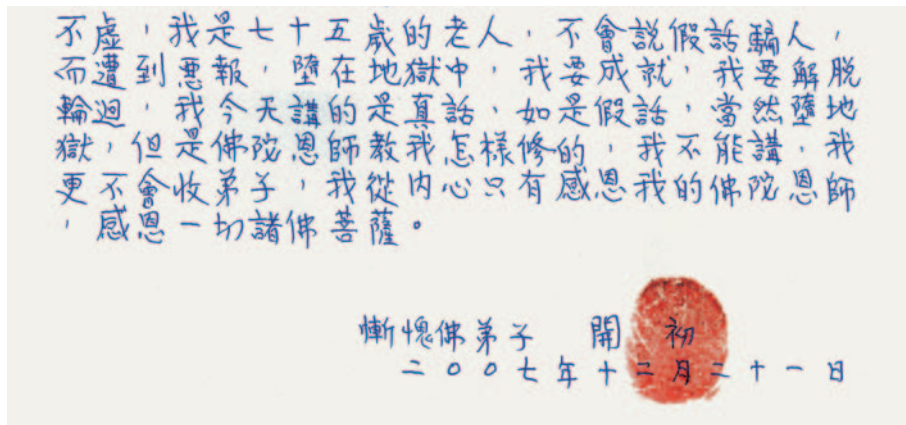 不虛，我是七十五歲的老人，不會說假話騙人，
而遭到惡報，墮在地獄中，我要成就，我要解脫
輪迴，我今天講的是真話，如是假話，當然墮地
獄，但是佛陀恩師教我怎樣修的，我不能講，我
更不會收弟子，我從內心只有感恩我的佛陀恩師
，感恩一切諸佛菩薩。
慚愧佛弟子 開 初
二〇〇七年十二月二十一日